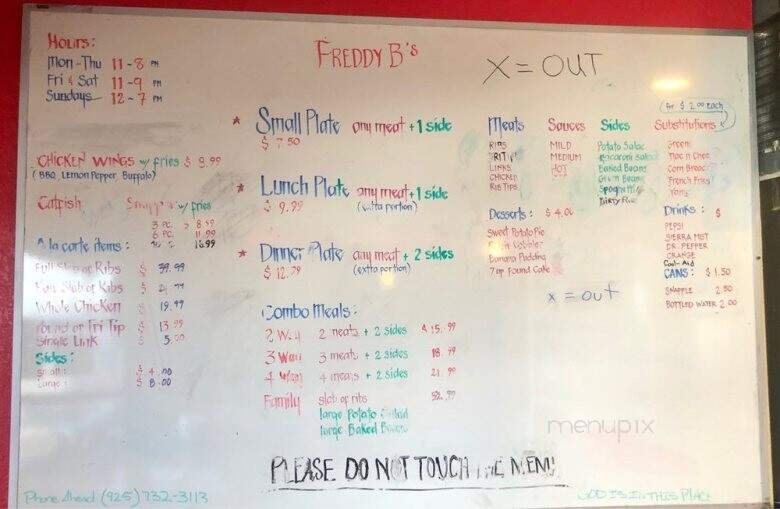 Hours:
Mon-Thu 11-8 PM
Fri & Sat 11-9 PM
Sundays 12-7 PM
FREDDY B's
X = OUT
CHICKEN WINGS w/ fries $ 9.99
(BBQ Lemon Pepper Buffalo)
Catfish w/ fries
3 PC. 8.59
6 PC. 11.99
16.99
A la carte items:
Full Slab of Ribs $
Slab of Ribs $
Whole Chicken $ 19.99
Pound of Tri Tip $ 13.99
Single Link $ 5.00
Sides:
Small: $ 4.00
Large: $ 8.00
Phone Ahead (925) 732-3113
* Small Plate any meat + 1 side
$ 7.50
* Lunch Plate any meat + 1 side
$ 9.99 (extra portion)
* Dinner Plate any meat + 2 sides
$ 12.99 (extra portion)
Combo Meals:
2 Way 2 meats + 2 sides $ 15.99
3 Way 3 meats + 2 sides 18.99
4 Way 4 meats + 2 sides 21.99
Family slab of ribs
large Potato Salad
large Baked Beans
PLEASE DO NOT TOUCH THE MENU
Meats
RIBS
TRI TIP
LINKS
CHICKEN
RIB TIPS
Sauces
MILD
MEDIUM
HOT
Sides
Potato Salad
Macaroni Salad
Baked Beans
Green Beans
Spaghetti
Dirty Rice
(for $ 2.00 each)
Substitutions
Greens
Mac n Chee
Corn Bread
French Fries
Yams
Desserts: $ 4.00
Sweet Potato Pie
Cobbler
Banana Pudding
7 up Pound Cake
x = out
Drinks: $
PEPSI
SIERRA MIST
DR. PEPPER
ORANGE
Cool-Aid
CANS: $ 1.50
SNAPPLE 2.50
BOTTLED WATER 2.00
menupix
GOD IS IN THIS PLACE